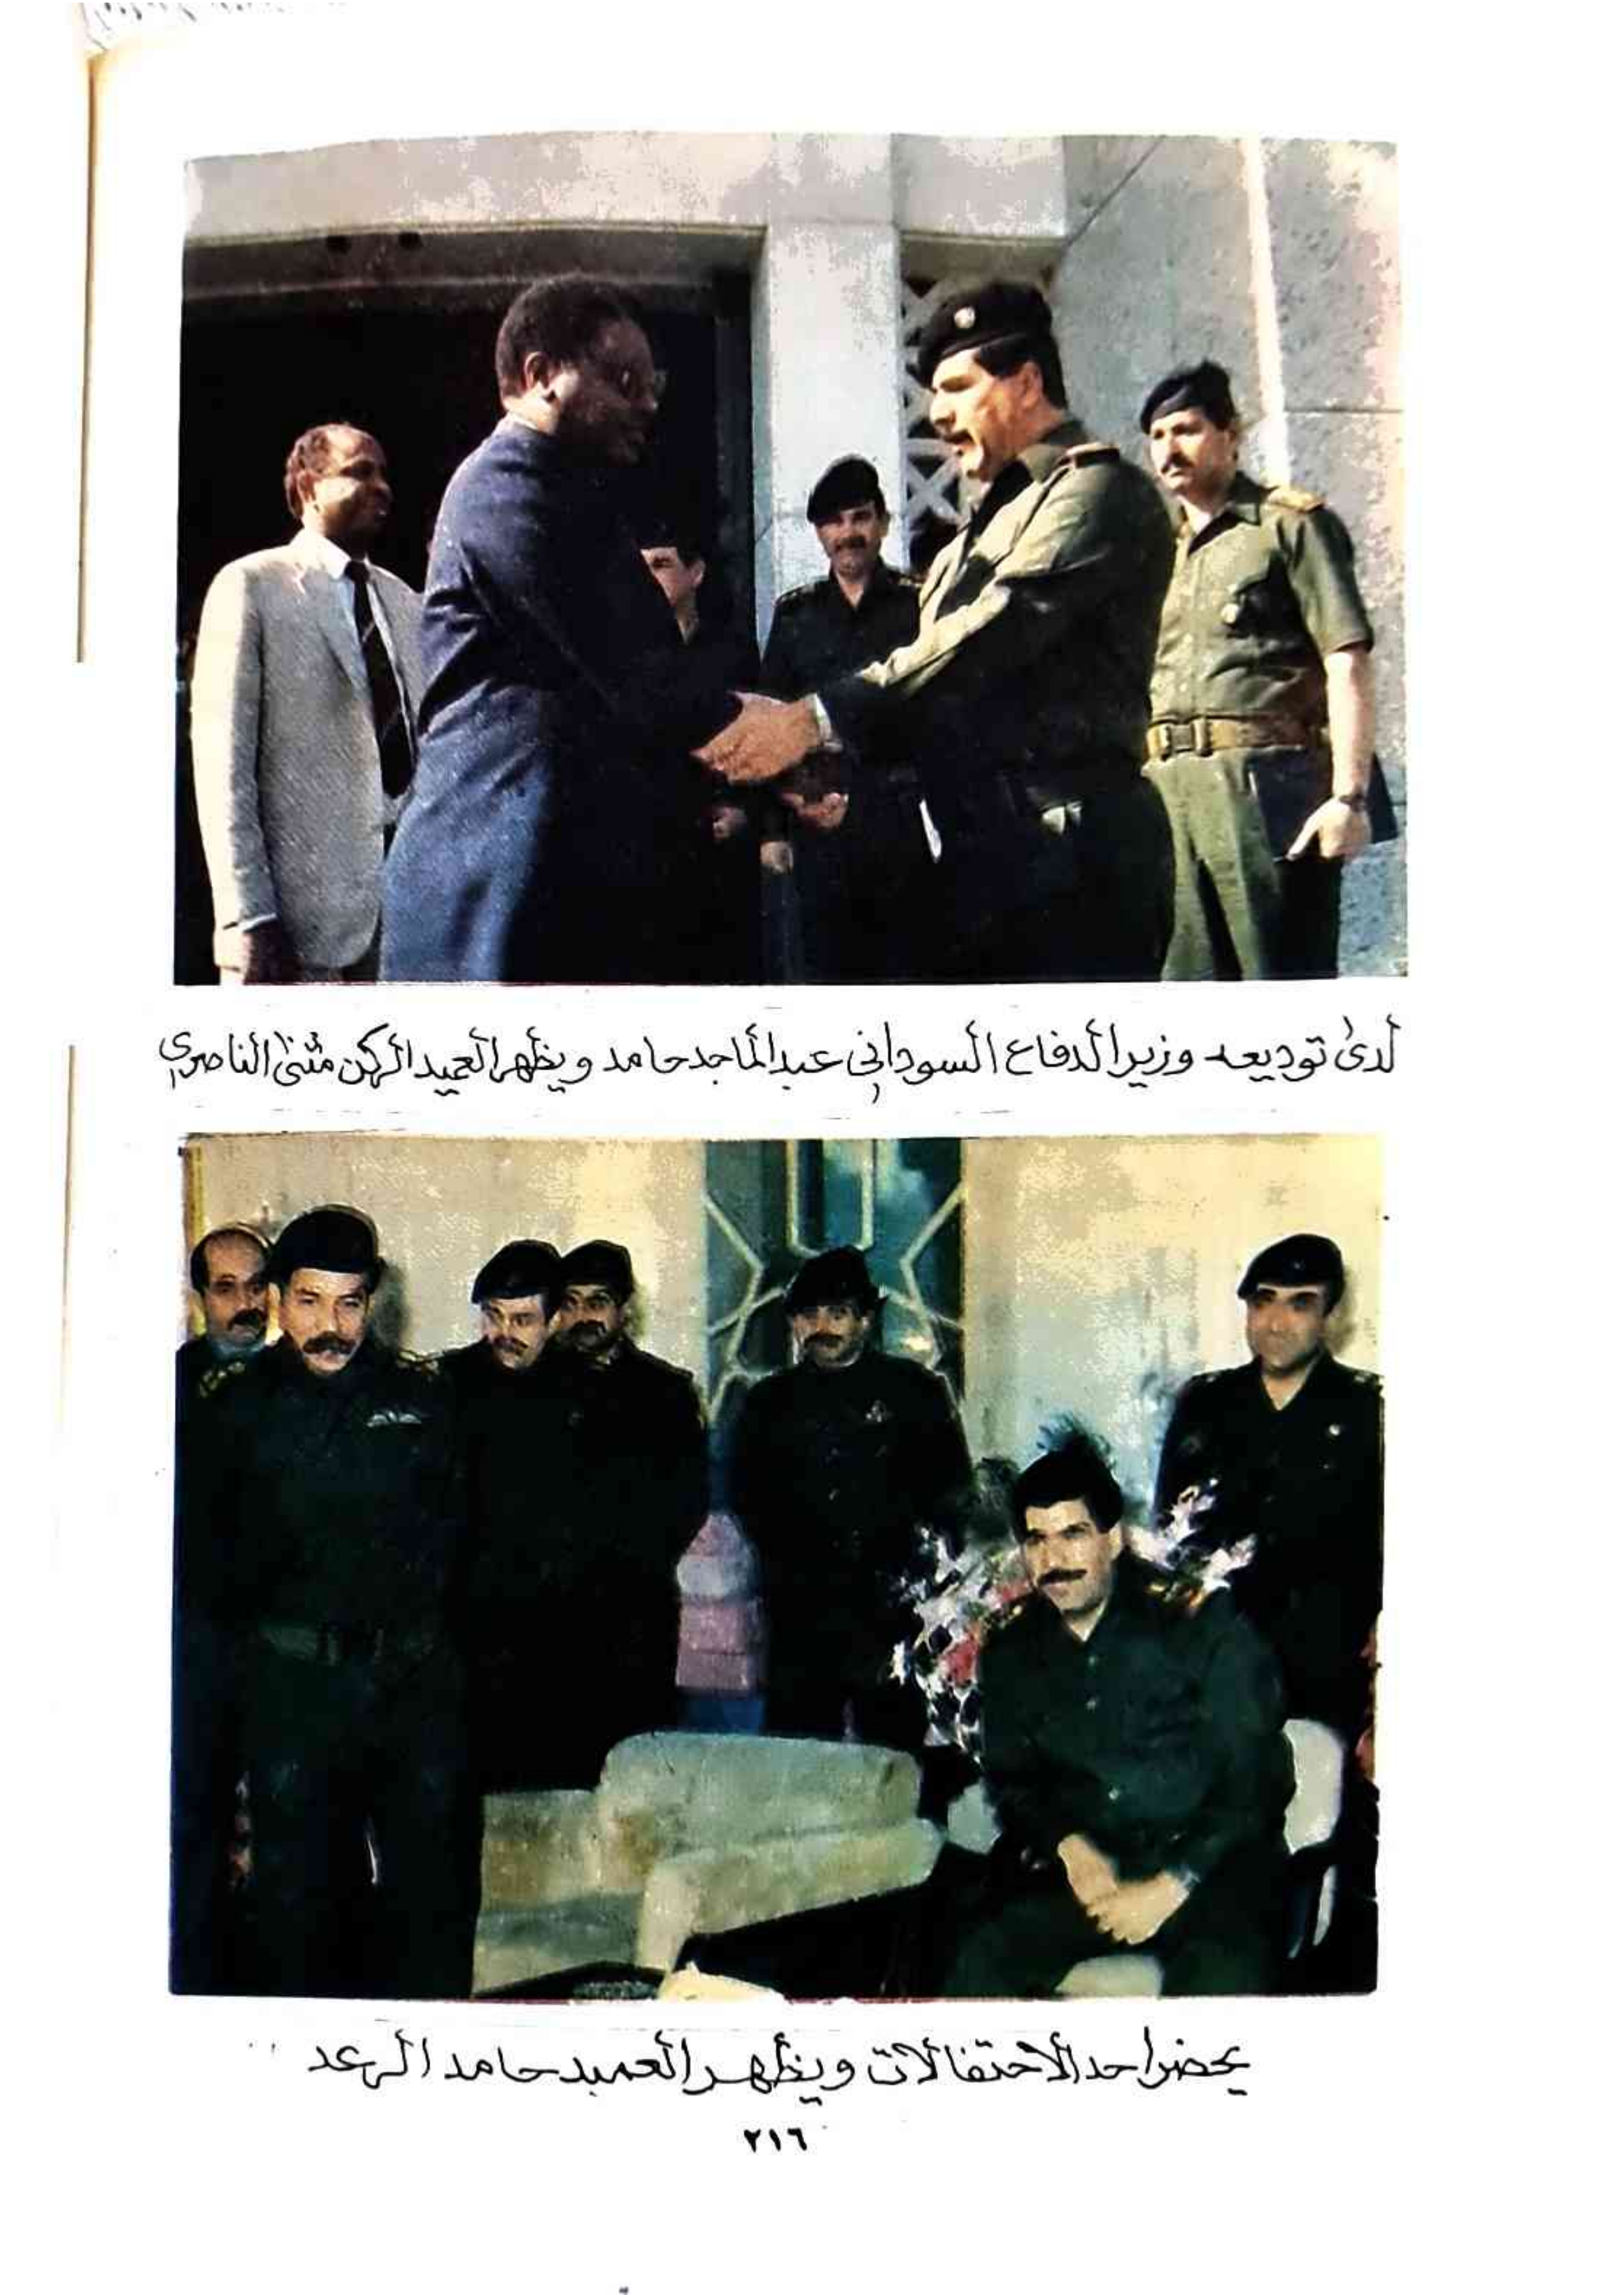 لدى توديعه وزير الدفاع السوداني عبد الماجد حامد ويظهر العميد الركن مثنى الناصري
يحضر احد الاحتفالات ويظهر العميد حامد الرعد
٢١٦